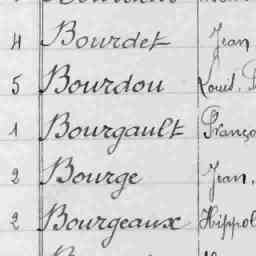 4 Bourdet Jean
5 Bourdou Louis,
1 Bourgault Franço
2 Bourge Jean,
2 Bourgeaux Hippol